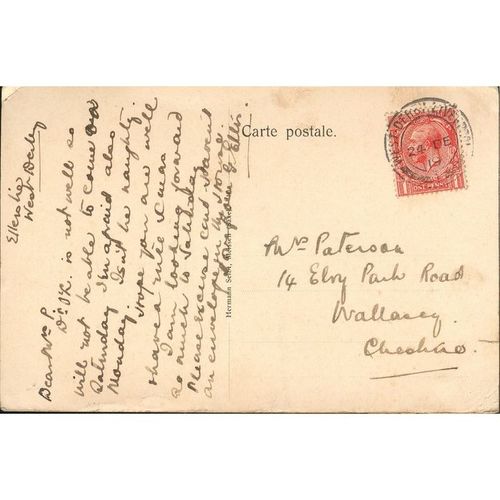 Ellerslie
West Derby
Dear Mrs P.
Dr OK. is not well so
will not be able to come on
Saturday I'm afraid also
Monday. Isn't he naughty.
Hope you are well
& have a nice Xmas
I am looking forward
so much to Saturday
Please excuse card I haven't
an envelope in the house
Ellie.
Carte postale.
Hermann
WEST DERBY LIVERPOOL
24 DE
ONE PENNY
Mrs Paterson
14 Elvy Park Road
Wallasey.
Cheshire.